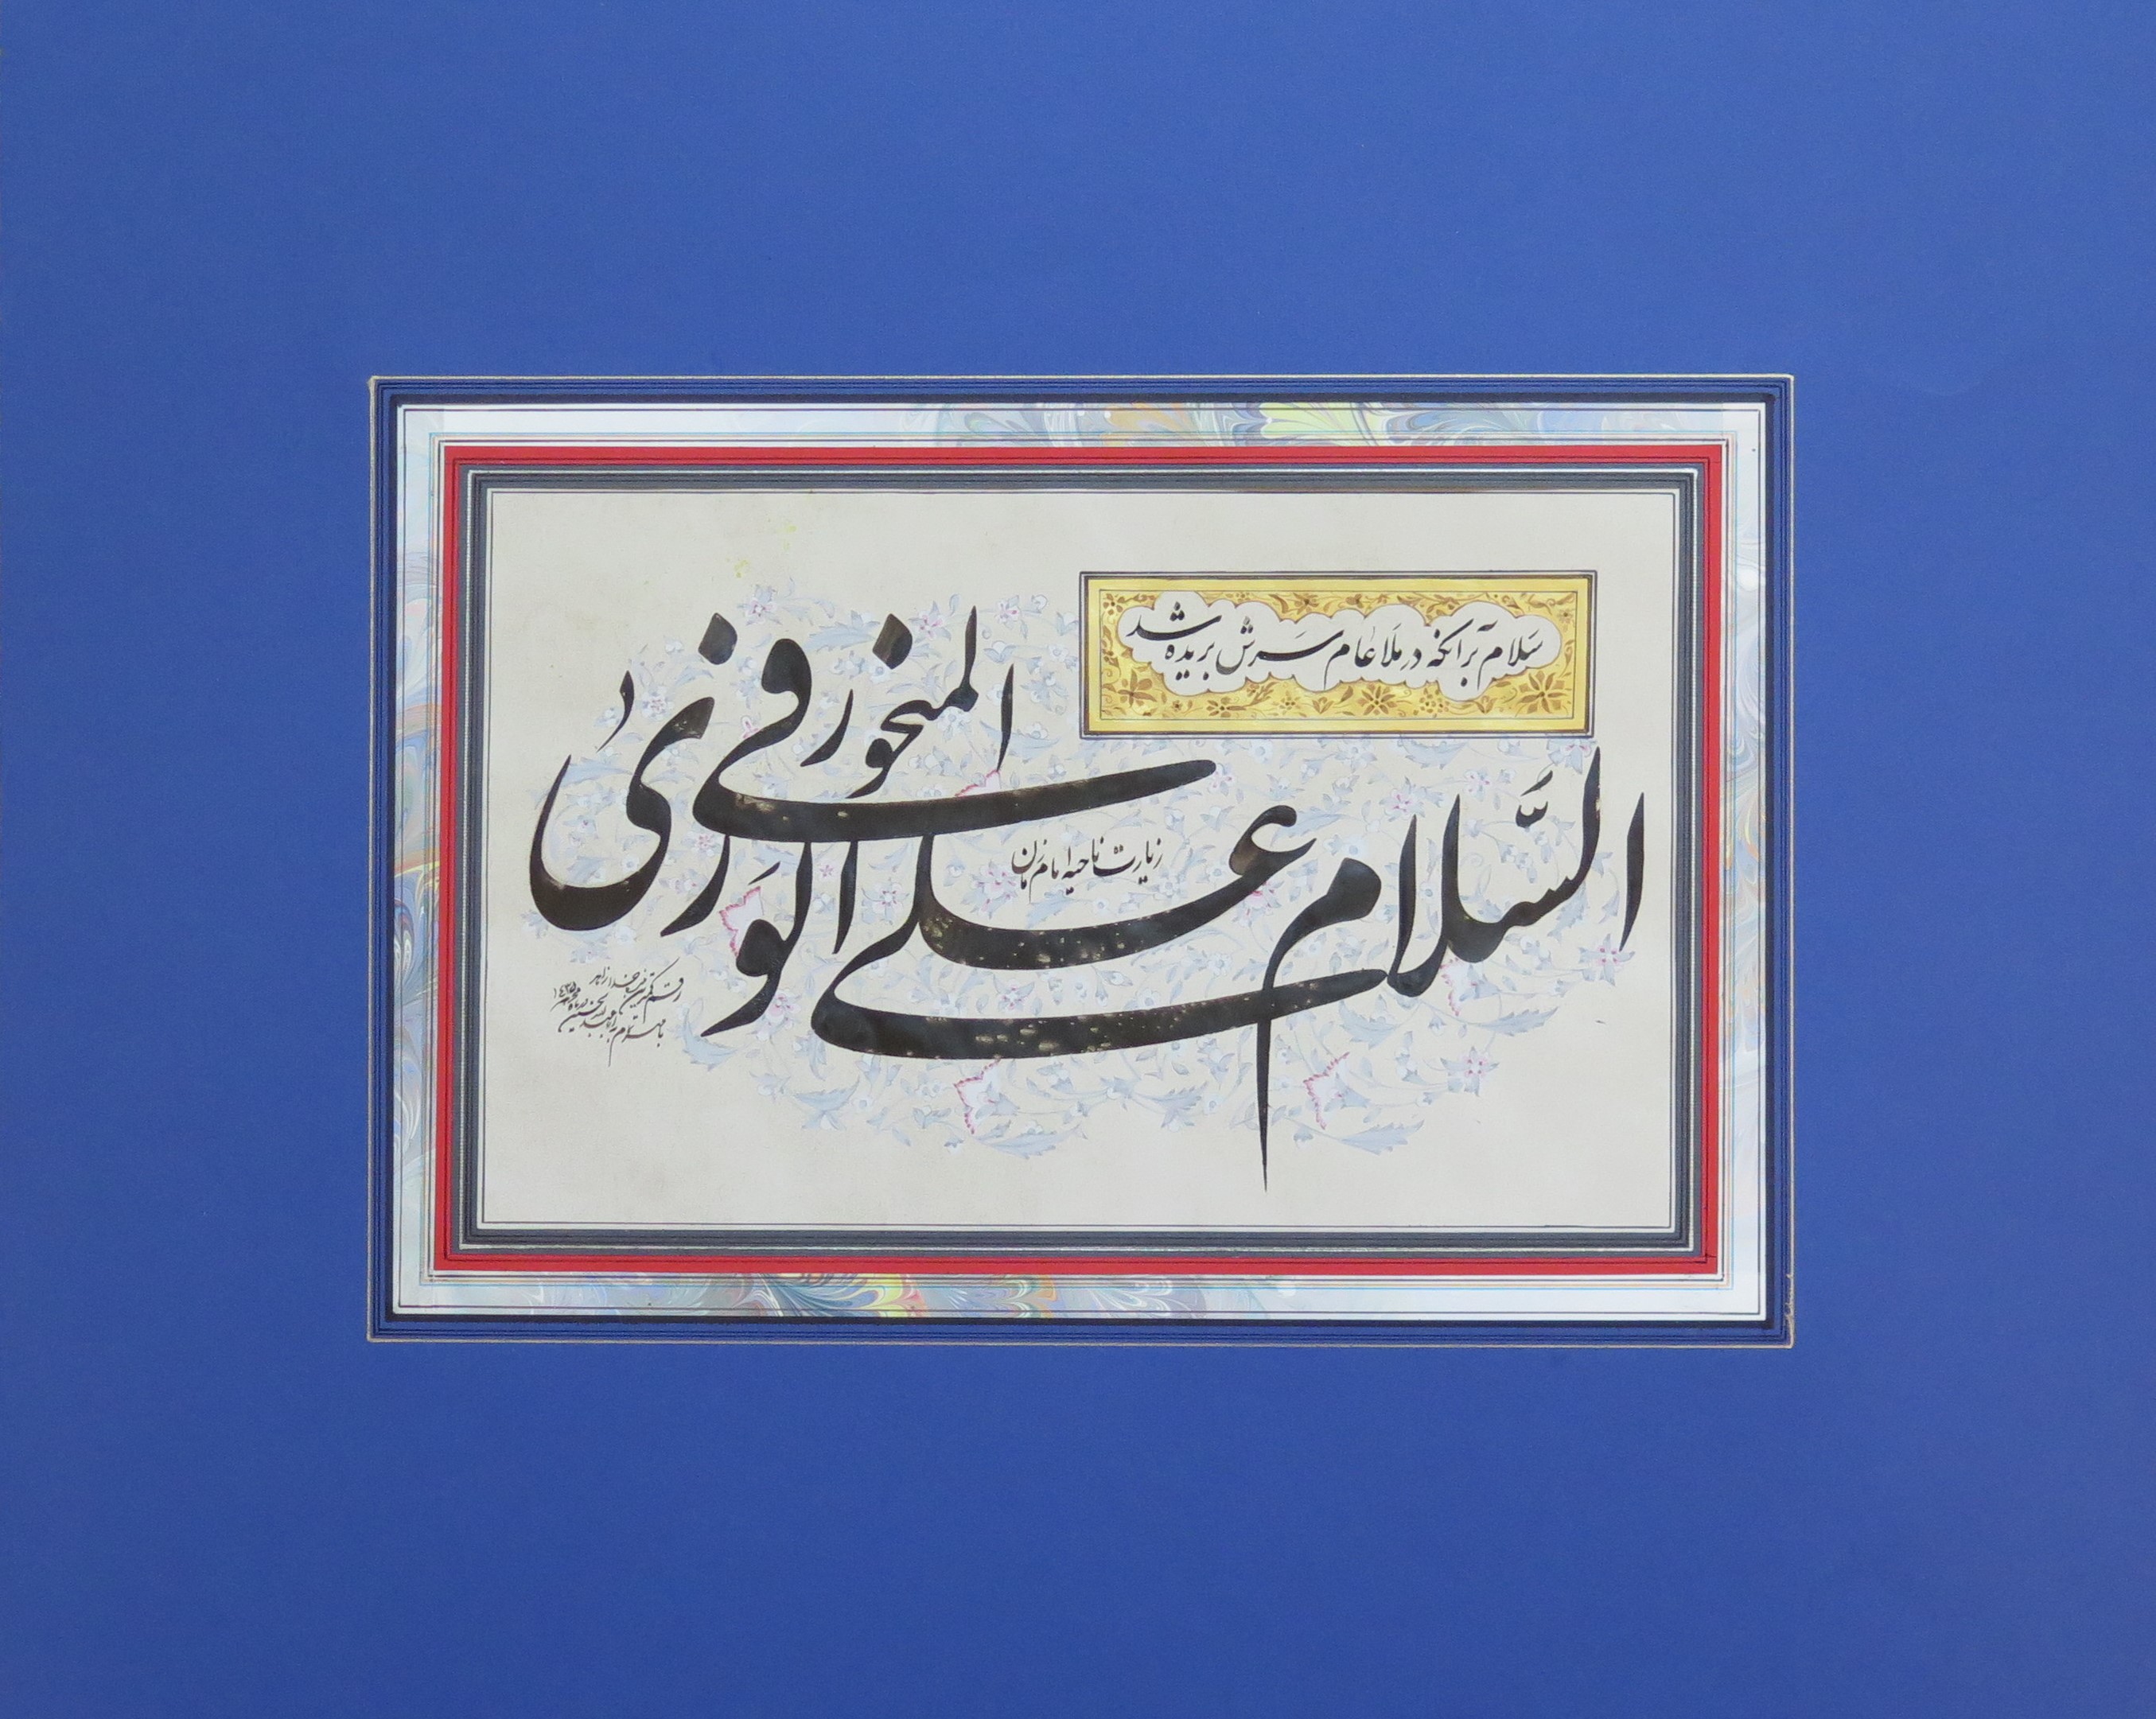 سلام بر آنکه در ملأ عام سرش بریده شد
السَّلام علی
المنحور فی الوریٰ
زیارت ناحیه امام زمان
رقم کمترین
۱۴۳۵